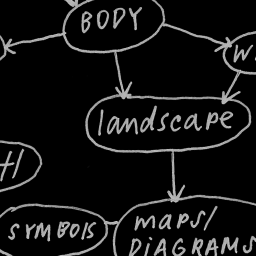 BODY
landscape
SYMBOLS
maps/
DiAGRAMS